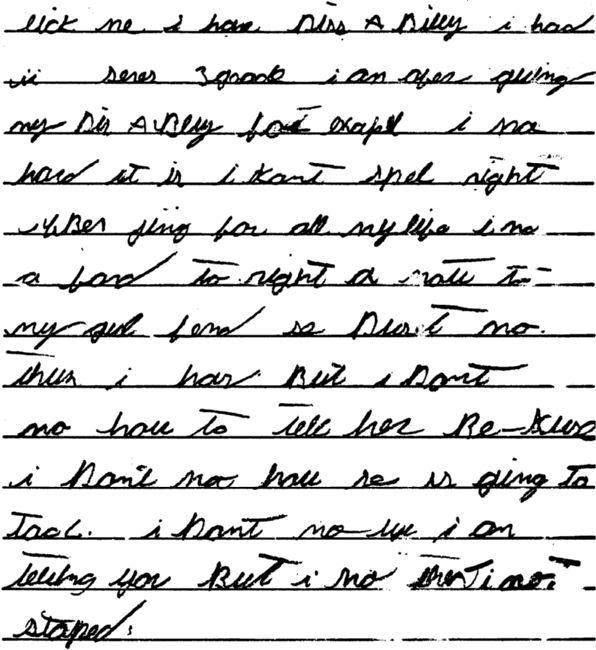 lick me i have Diss A Bility i had
it seres 3 grade i am giving
my Dis A Bility for exapl i no
hard it is i Kant spel right
ben for all my life i no
a fard to right a note to
my gul fend se Dusit no.
thus i hav But i Dont
no hau to tell her Be-Kuse
i Don't no hau se is going to
tack. i Dant no i am
telling you But i no i not
staped.